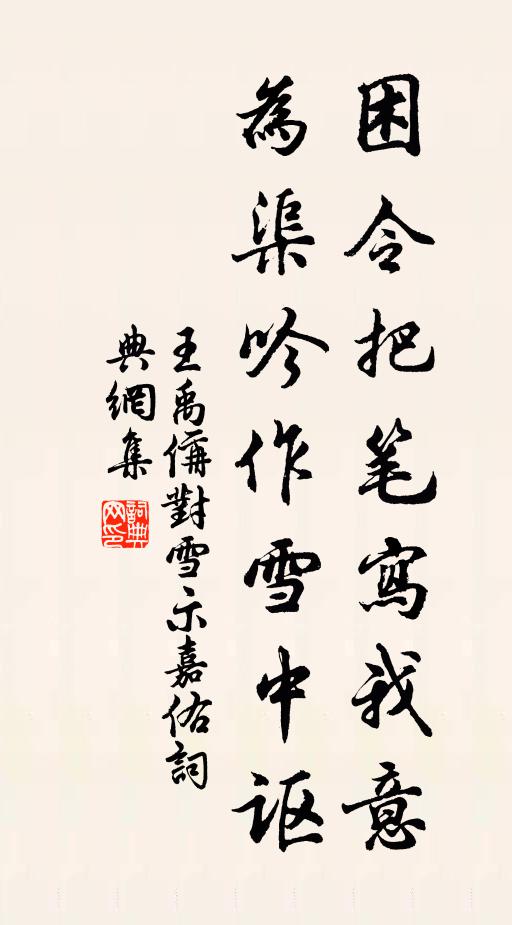 困令把笔寫我意
為渠吟作雪中讴
王禹偁對雪示嘉佑詞
典網集
詞典网印